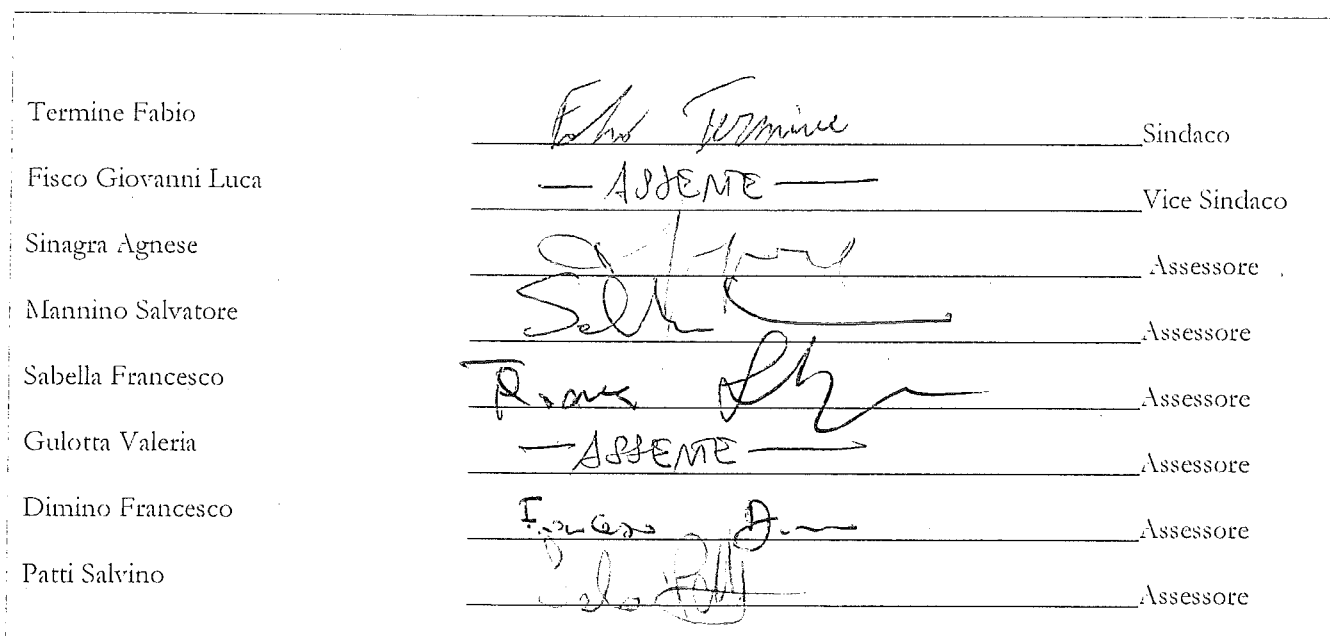 Termine Fabio Fabio Termine Sindaco
Fisco Giovanni Luca — ASSENTE — Vice Sindaco
Sinagra Agnese Assessore
Mannino Salvatore Assessore
Sabella Francesco Assessore
Gulotta Valeria — ASSENTE — Assessore
Dimino Francesco Francesco Assessore
Patti Salvino Assessore